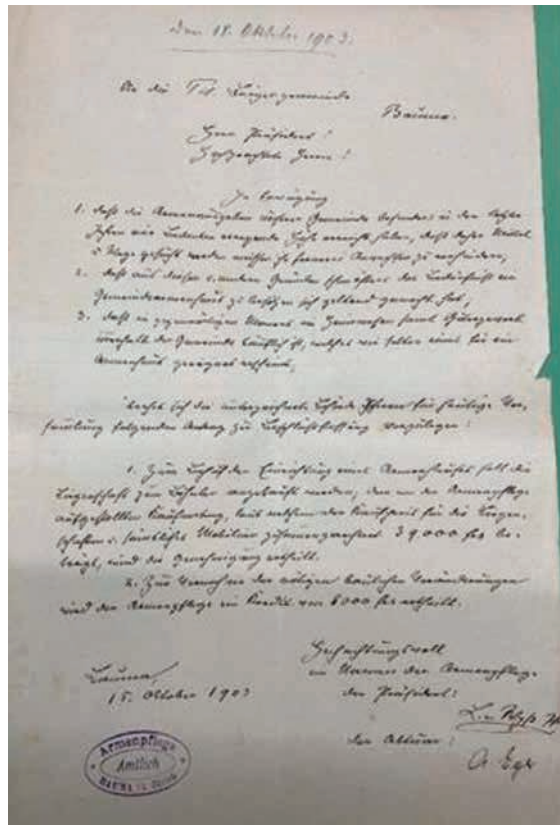 den 18. Oktober 1903.
An die Tit. Bürgergemeinde
Bauma.
Herr Präsident!
Hochgeachtete Herren!
In Erwägung
1. daß die Armenausgaben unserer Gemeinde besonders in den letzten
Jahren eine Bedenken erregende Höhe erreicht haben, daß daher Mittel
u. Wege gesucht werden müssen ja ferneres Anwachsen zu verhindern,
2. daß aus diesen u. andern Gründen schon öfters das Bedürfnis ein
Gemeindearmenhaus zu besitzen sich geltend gemacht hat,
3. daß im gegenwärtigen Moment ein Heimwesen samt Gütergewerb
innerhalb der Gemeinde käuflich ist, welches wie selten eines für ein
Armenhaus geeignet erscheint,
beehrt sich die unterzeichnete Behörde Ihnen für heutige Ver-
sammlung folgenden Antrag zur Beschlußfassung vorzulegen:
1. Zum Behuf der Einrichtung eines Armenhauses soll die
Liegenschaft zum angekauft werden; dem von der Armenpflege
aufgestellten Kaufvertrag, laut welchem der Kaufpreis für die Liegen-
schaften u. sämtliches Mobiliar zusammengerechnet 39.000 frs be-
trägt, wird die Genehmigung erteilt.
2. Zur Vornahme der nötigen baulichen Veränderungen
wird der Armenpflege ein Kredit von 6000 frs erteilt.
Hochachtungsvoll
im Namen der Armenpflege
Bauma,
15. Oktober 1903
der Präsident:
der Aktuar:
Armenpflege
Amtlich
BAUMA